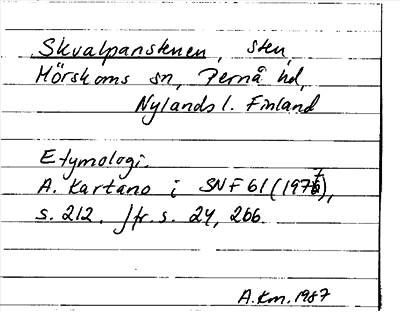 Skvalpanstenen, sten,
Mörskoms sn, Pernå hd,
Nylands l. Finland
Etymologi.
A. Kartano i SNF 61 (1977),
s. 212. Jfr. s. 24, 266.
A.Km. 1987